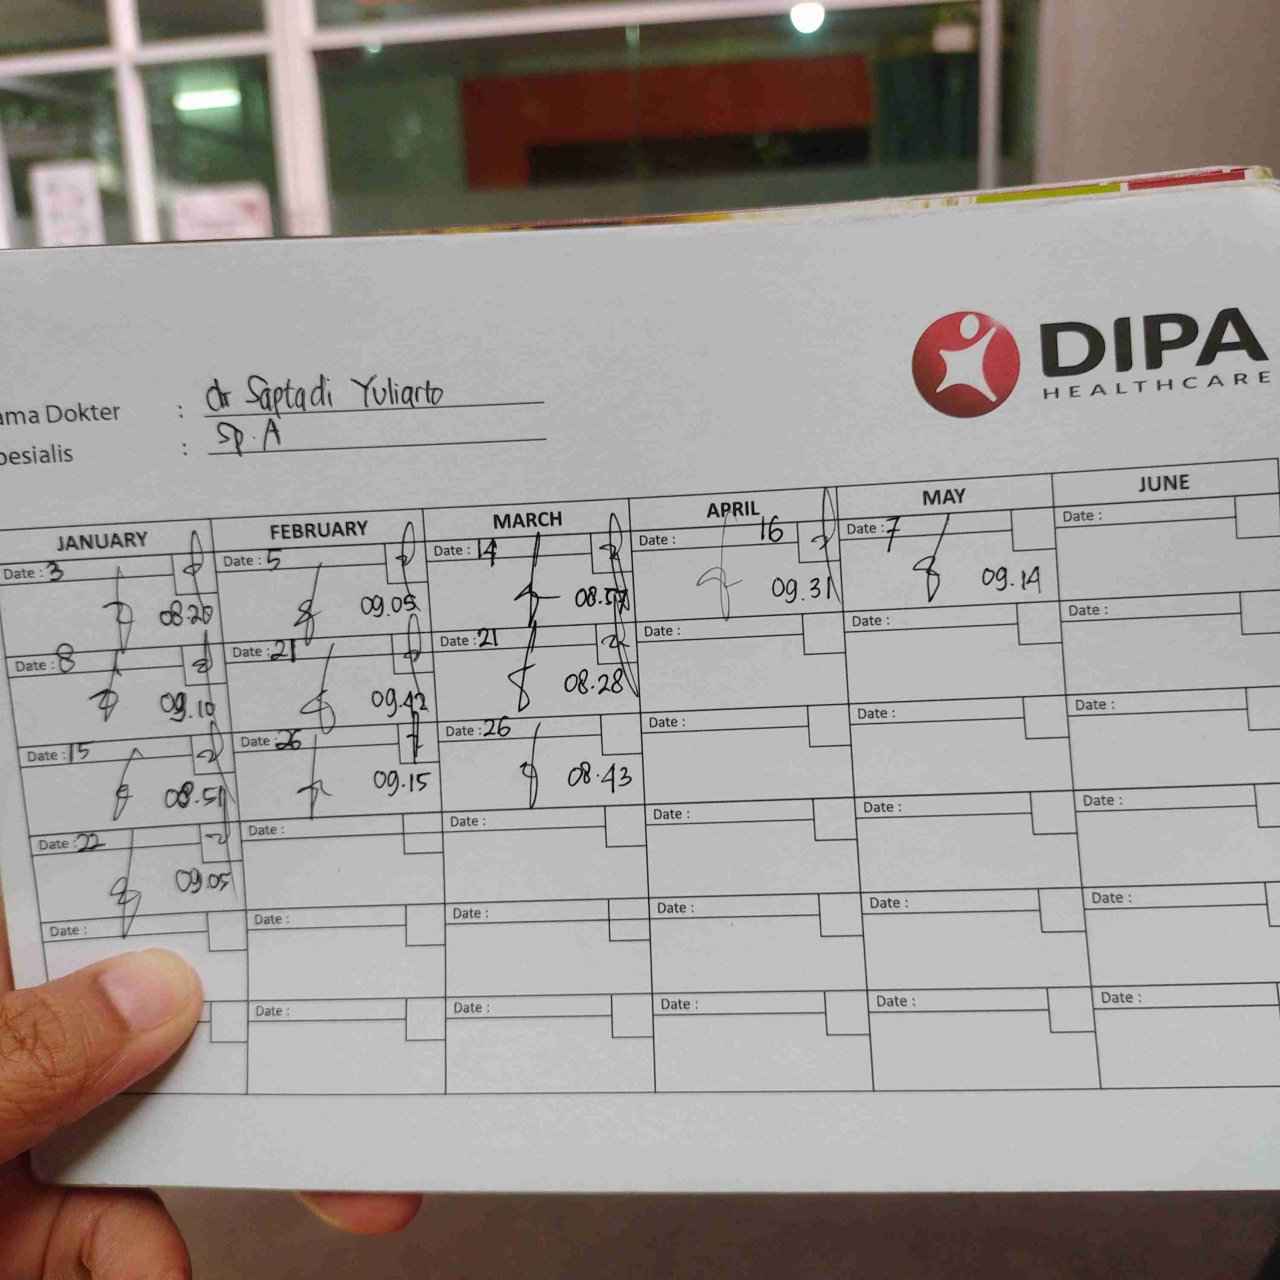 DIPA
HEALTHCARE
ama Dokter : dr Saptadi Yuliarto
pesialis : Sp. A
JANUARY FEBRUARY MARCH APRIL MAY JUNE
Date : 3 Date : 5 Date : 14 Date : 16 Date : 7 Date :
08.20 09.05 08.57 09.31 09.14
Date : 8 Date : 21 Date : 21 Date : Date : Date :
09.10 09.42 08.28
Date : 15 Date : 26 Date : 26 Date : Date : Date :
08.51 09.15 08.43
Date : 22 Date : Date : Date : Date : Date :
09.05
Date : Date : Date : Date : Date : Date :
Date : Date : Date : Date : Date :